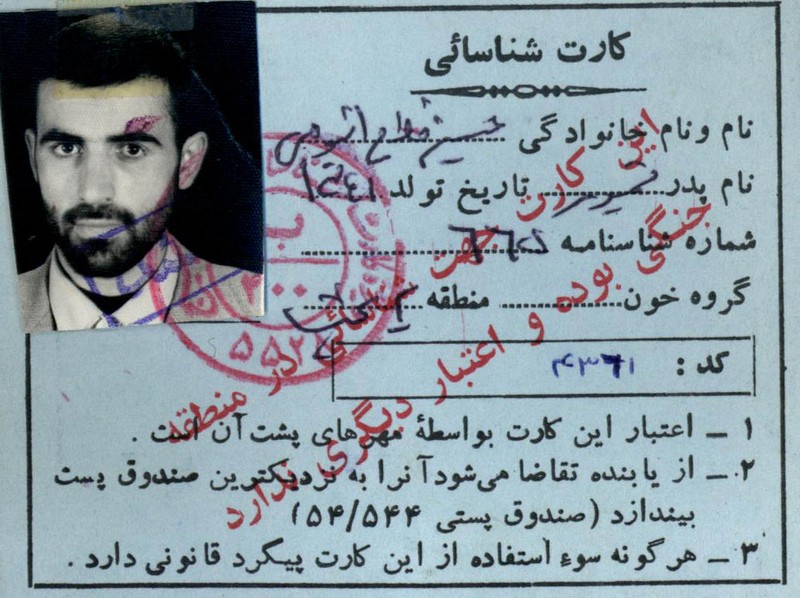 کارت شناسائی
نام و نام خانوادگی حسین
نام پدر تاریخ تولد ۱۳۴۱
شماره شناسنامه ۶۶۵
گروه خون منطقه
کد : ۴۳۶۱
۱ ـ اعتبار این کارت بواسطهٔ مهرهای پشت آن است .
۲ ـ از یابنده تقاضا می‌شود آنرا به نزدیکترین صندوق پست
بیندازد (صندوق پستی ۵۴/۵۴۴)
۳ ـ هرگونه سوء استفاده از این کارت پیگرد قانونی دارد .
این کارت جهت شناسائی در منطقه
جنگی بوده و اعتبار دیگری ندارد